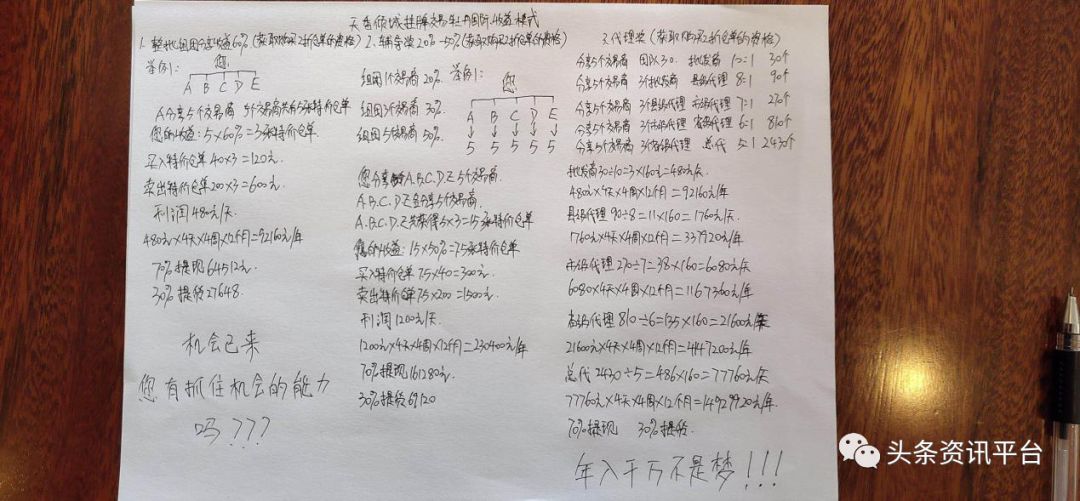 天香倾城挂牌交易 收益模式
1.整批组团 收益60%(获取购买2折仓单的资格)
举例1:
您
A B C D E
A分享5个交易商 5个交易商共有5张特价仓单
您的收益:5×60%=3张特价仓单
买入特价仓单 40×3=120元
卖出特价仓单200×3=600元
利润480元/天
480元×4天×4周×12个月=92160元/年
70%提现64512元
30%提货27648.
机会已来
您有抓住机会的能力
吗???
2.辅导奖20%-50%(获取购买2折仓单的资格)
组团1个交易商 20%
组团3个交易商 30%
组团5个交易商 50%
举例1:
您
A B C D E
5 5 5 5 5
您分享A.B.C.D.E5个交易商.
A.B.C.D.E各分享5个交易商
A.B.C.D.E共获得5×3=15张特价仓单
您的收益:15×50%=7.5张特价仓单
买入特价仓单 7.5×40=300元
卖出特价仓单7.5×200=1500元
利润1200元/天
1200元×4天×4周×12个月=230400元/年
70%提现161280元
30%提货69120
3.代理奖(获取购买2折仓单的资格)
分享5个交易商 团队30. 批发商 10:1 30个
分享5个交易商 3个批发商 县级代理 8:1 90个
分享5个交易商 3个县级代理 市级代理 7:1 270个
分享5个交易商 3个市级代理 省级代理 6:1 810个
分享5个交易商 3个省级代理 总代 5:1 2430个
批发商30÷10=3×160元=480元/天
480元×4天×4周×12个月=92160元/年
县级代理 90÷8=11×160=1760元/天.
1760元×4天×4周×12个月=337920元/年
市级代理270÷7=38×160=6080元/天
6080×4天×4周×12个月=1167360元/年
省级代理810÷6=135×160=21600元/天
21600元×4天×4周×12个月=4147200元/年
总代2430÷5=486×160=77760元/天
77760元×4天×4周×12个月=14929920元/年.
70%提现 30%提货.
年入千万不是梦!!!
头条资讯平台